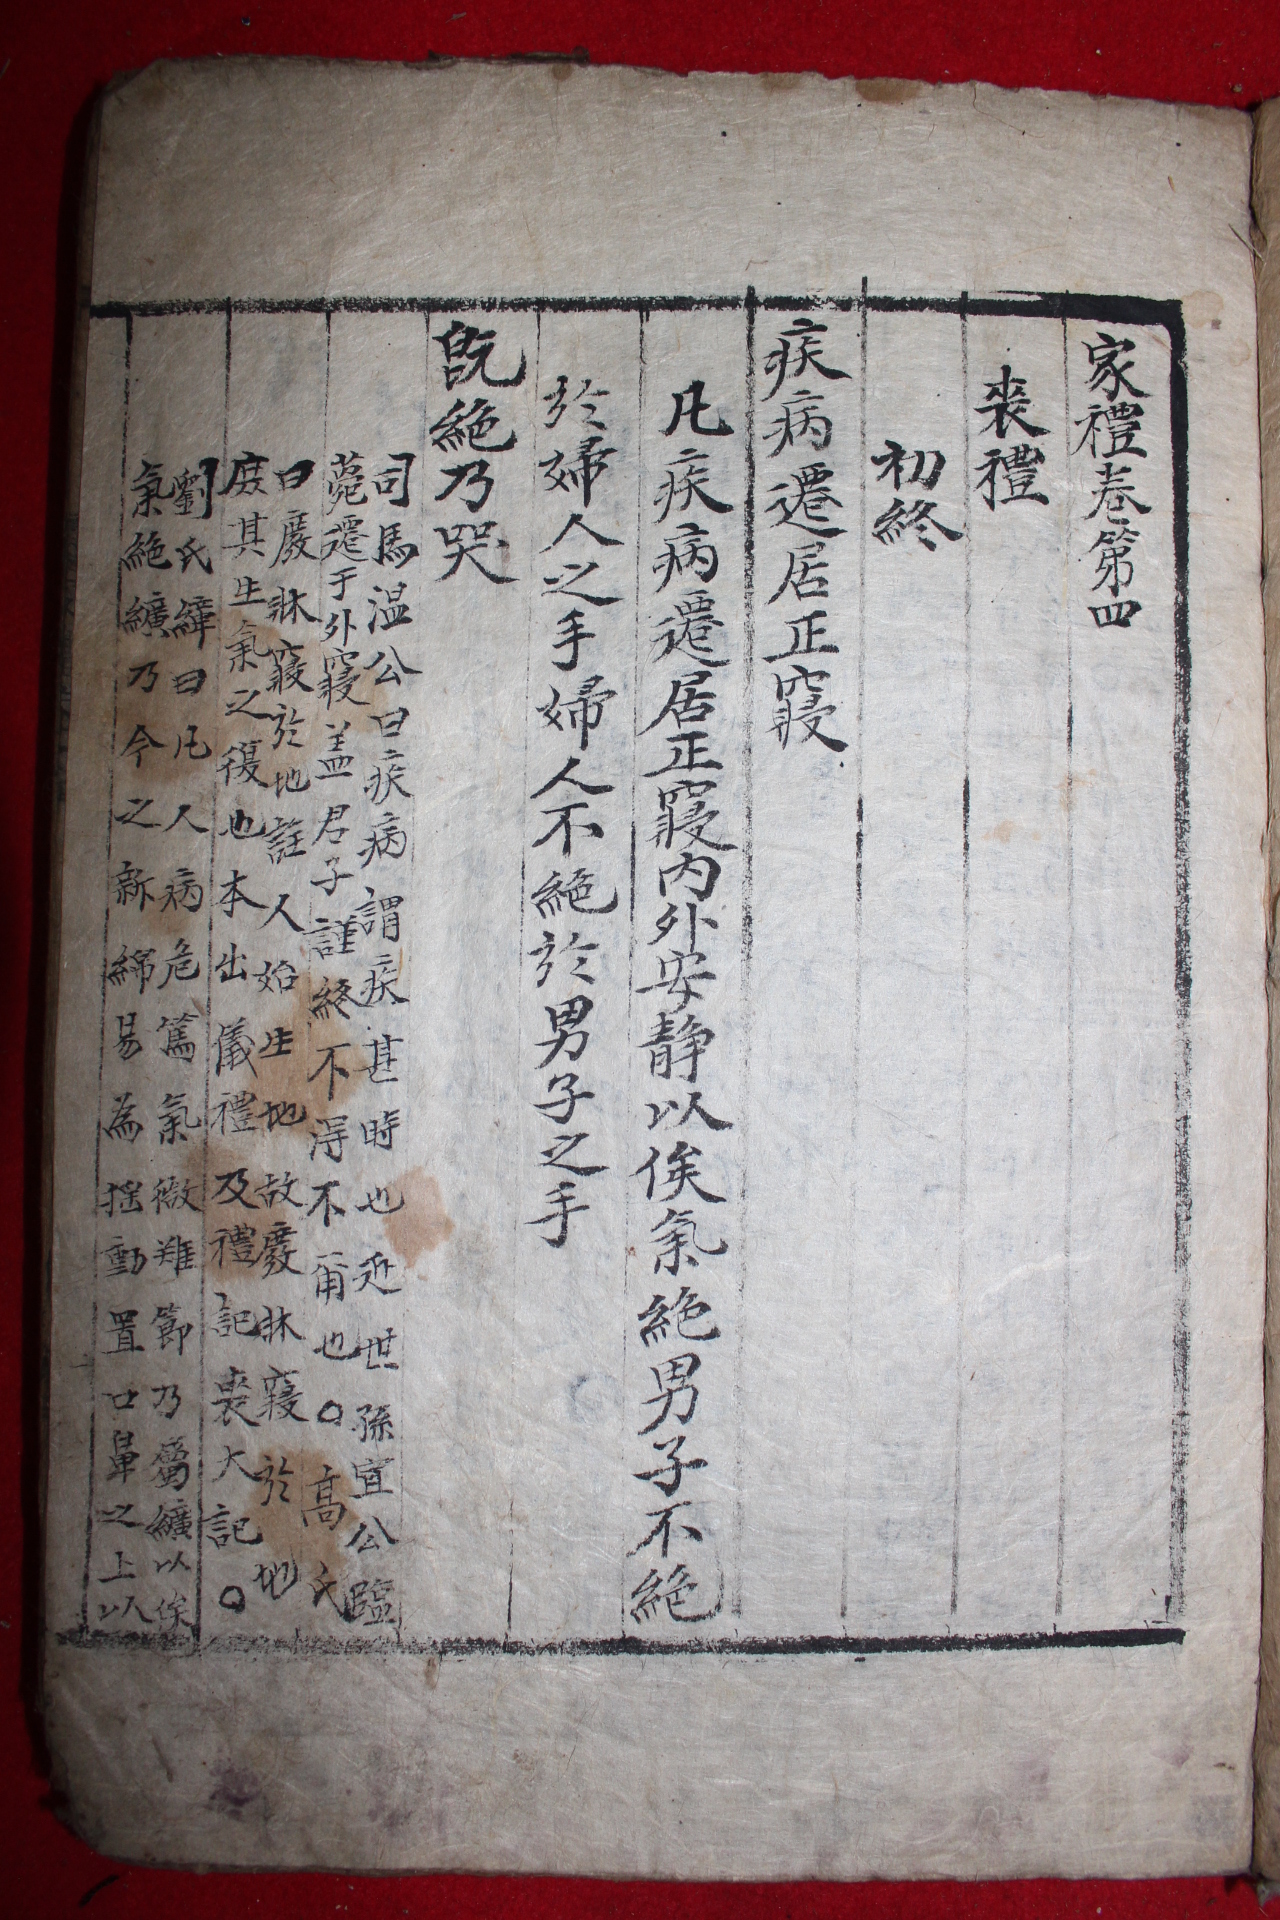 家禮卷第四
喪禮
初終
疾病遷居正寢
凡疾病遷居正寢內外安静以俟氣絶男子不絶
於婦人之手婦人不絶於男子之手
旣絶乃哭
司馬温公曰疾病謂疾甚時也近世孫宣公臨
薨遷于外寢盖君子謹終不得不甭也○高氏
曰廢牀寢於地註人始生地故廢牀寢於地
庻其生氣之復也本出儀禮及禮記喪大記○
劉氏緯曰凡人病危篤氣微難節乃屬纊以俟
氣絶纊乃今之新綿易為揺動置口鼻之上以